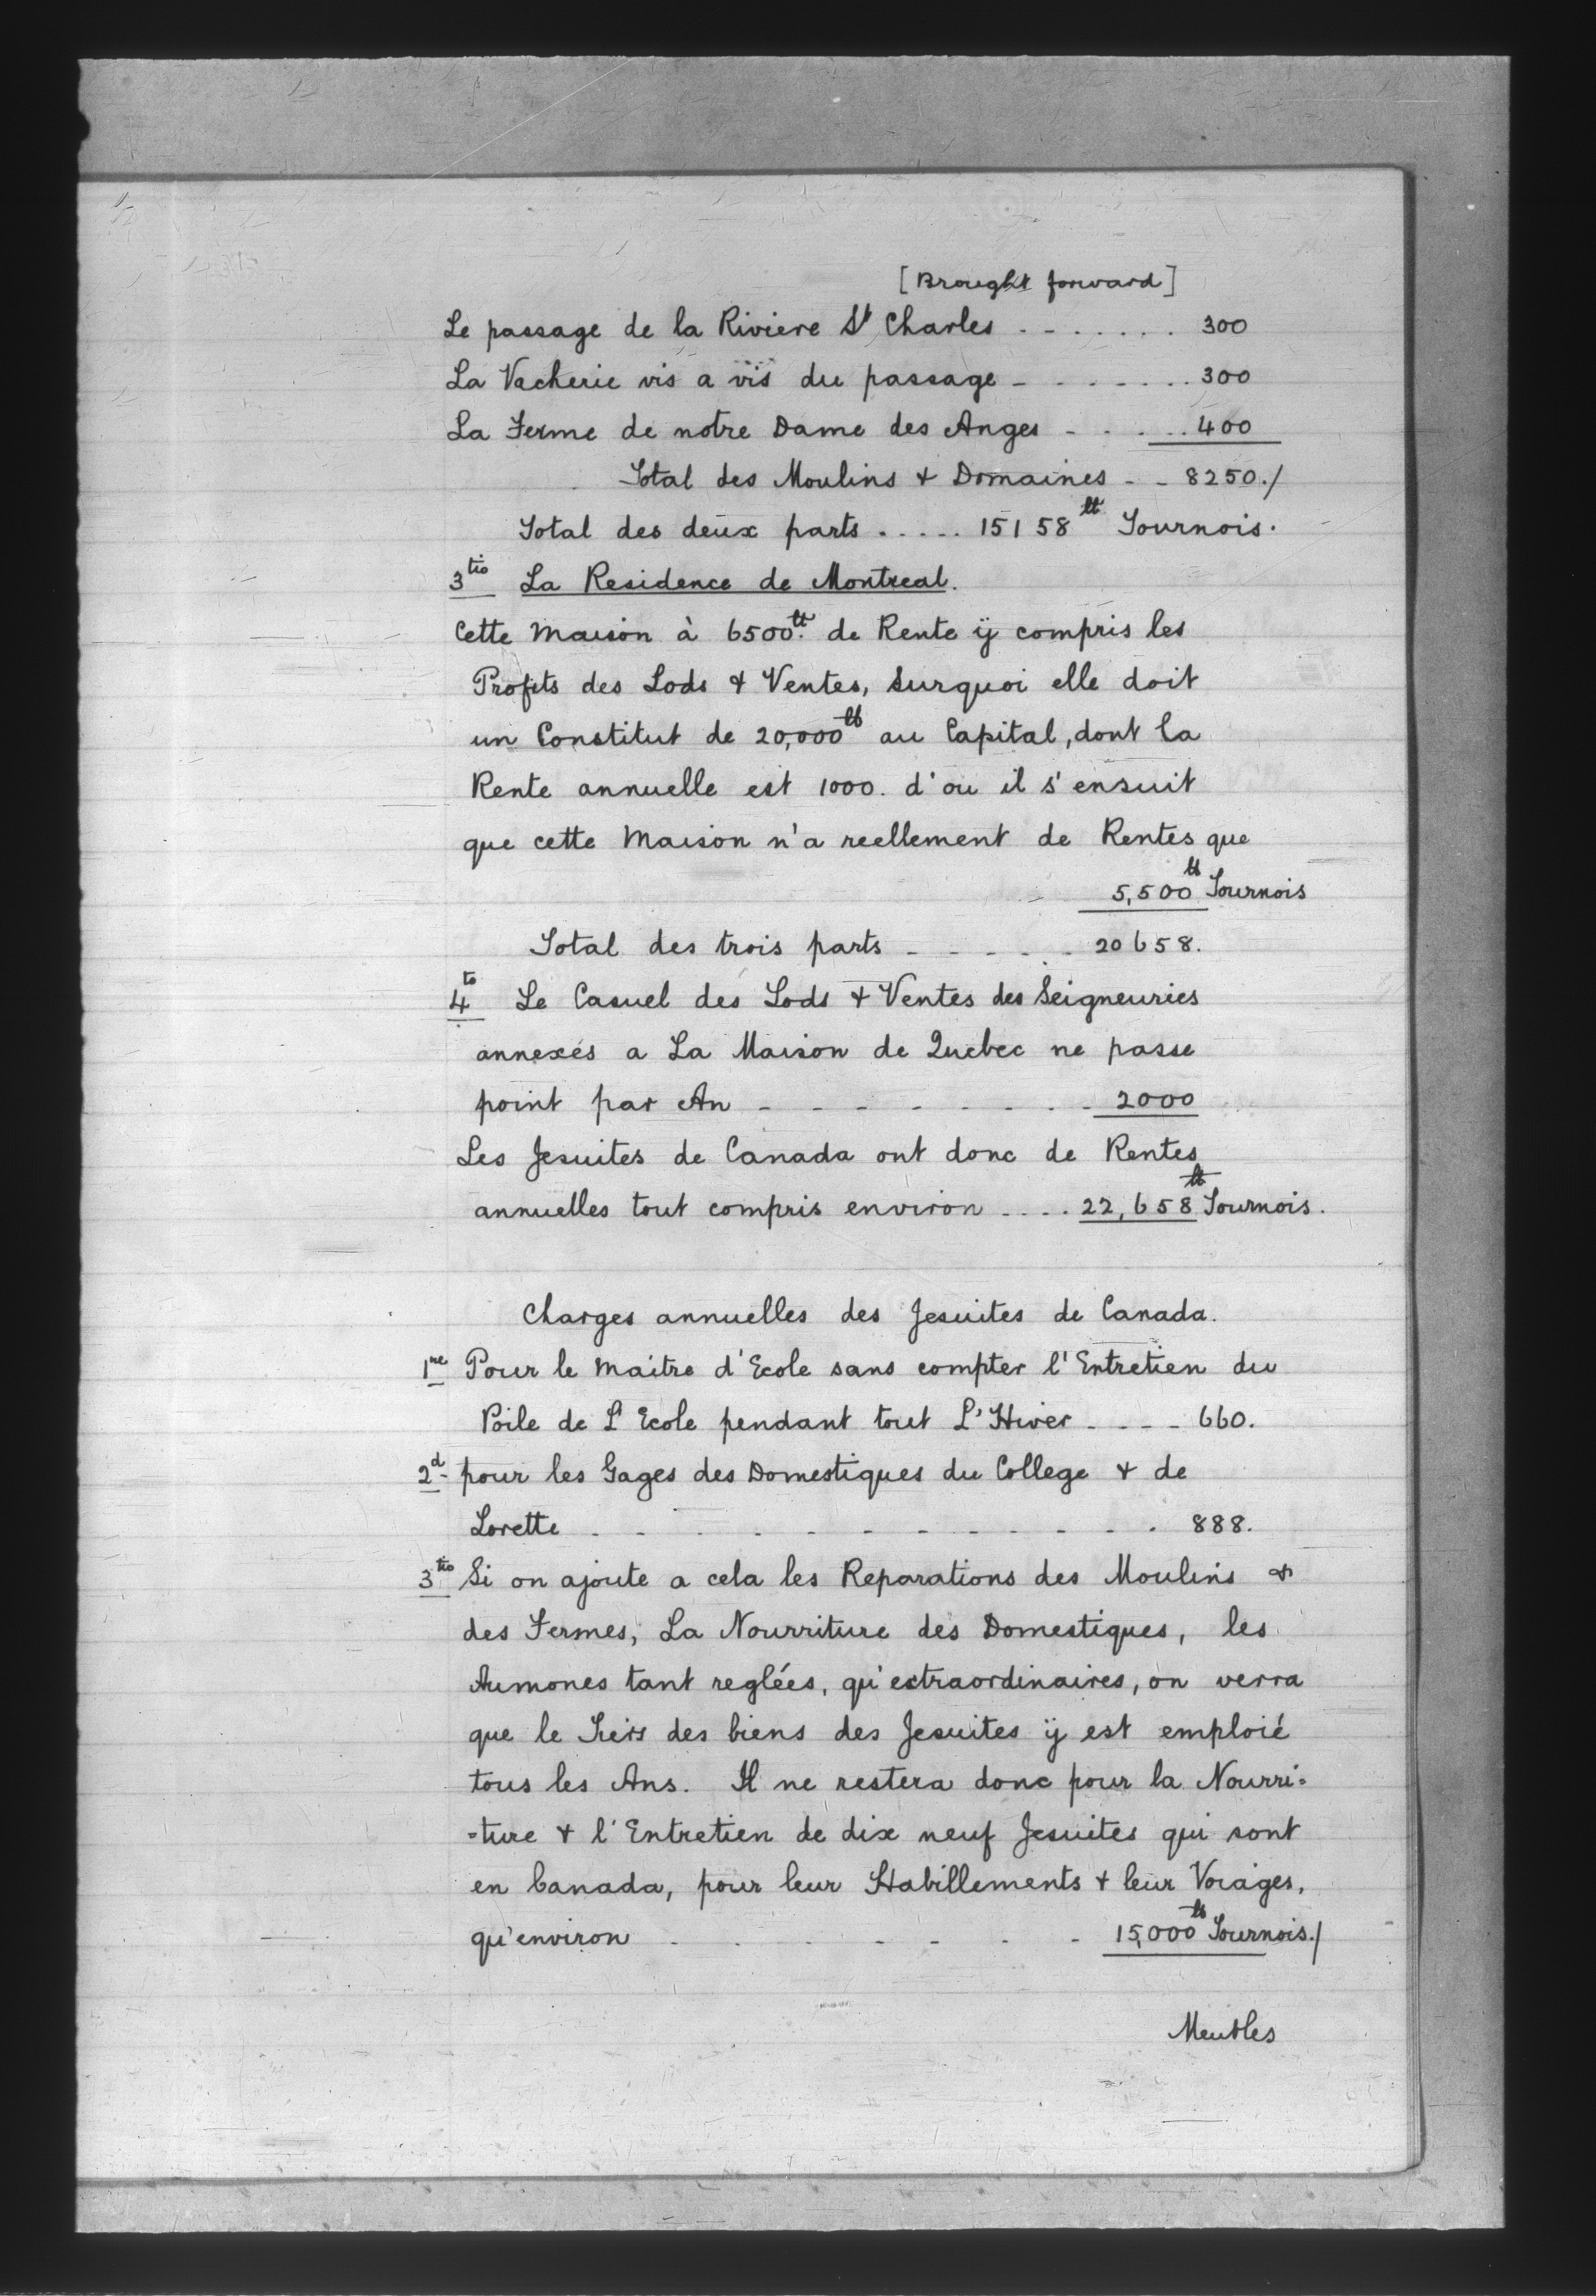 [Brought forward]
Le passage de la Riviere St Charles . - . . . . . 300
La Vacherie vis a vis du passage - . . - . . . 300
La Ferme de notre Dame des Anges - . . . . 400
Total des Moulins & Domaines - - 8250./
Total des deux parts . . . . . 15158 tt Tournois.
3tio La Residence de Montreal.
Cette Maison à 6500 tt. de Rente ÿ compris les
Profits des Lods & Ventes, Surquoi elle doit
un Constitut de 20,000 tt au Capital, dont la
Rente annuelle est 1000. d'ou il s'ensuit
que cette Maison n'a reellement de Rentes que
5,500 tt Tournois
Total des trois parts - - - . - 20658.
4to Le Casuel des Lods & Ventes des Seigneuries
annexés a La Maison de Quebec ne passe
point par An - - - - - - - - 2000
Les Jesuites de Canada ont donc de Rentes
annuelles tout compris environ - . . . 22,658 tt Tournois.
Charges annuelles des Jesuites de Canada.
1re Pour le maitre d'Ecole sans compter l'Entretien du
Poile de L'Ecole pendant tout L'Hiver - - - - 660.
2d- pour les Gages des Domestiques du College & de
Lorette - - - - - - - - - - . 888.
3tio Si on ajoute a cela les Reparations des Moulins &
des Fermes, La Nourriture des Domestiques, les
Aumones tant reglées, qu'extraordinaires, on verra
que le Tiers des biens des Jesuites ÿ est emploié
tous les Ans. Il ne restera donc pour la Nourri=
=ture & l'Entretien de dix neuf Jesuites qui sont
en Canada, pour leur Habillements & leur Voiages,
qu'environ - . . - - - . - 15,000 tt Tournois./
Meubles